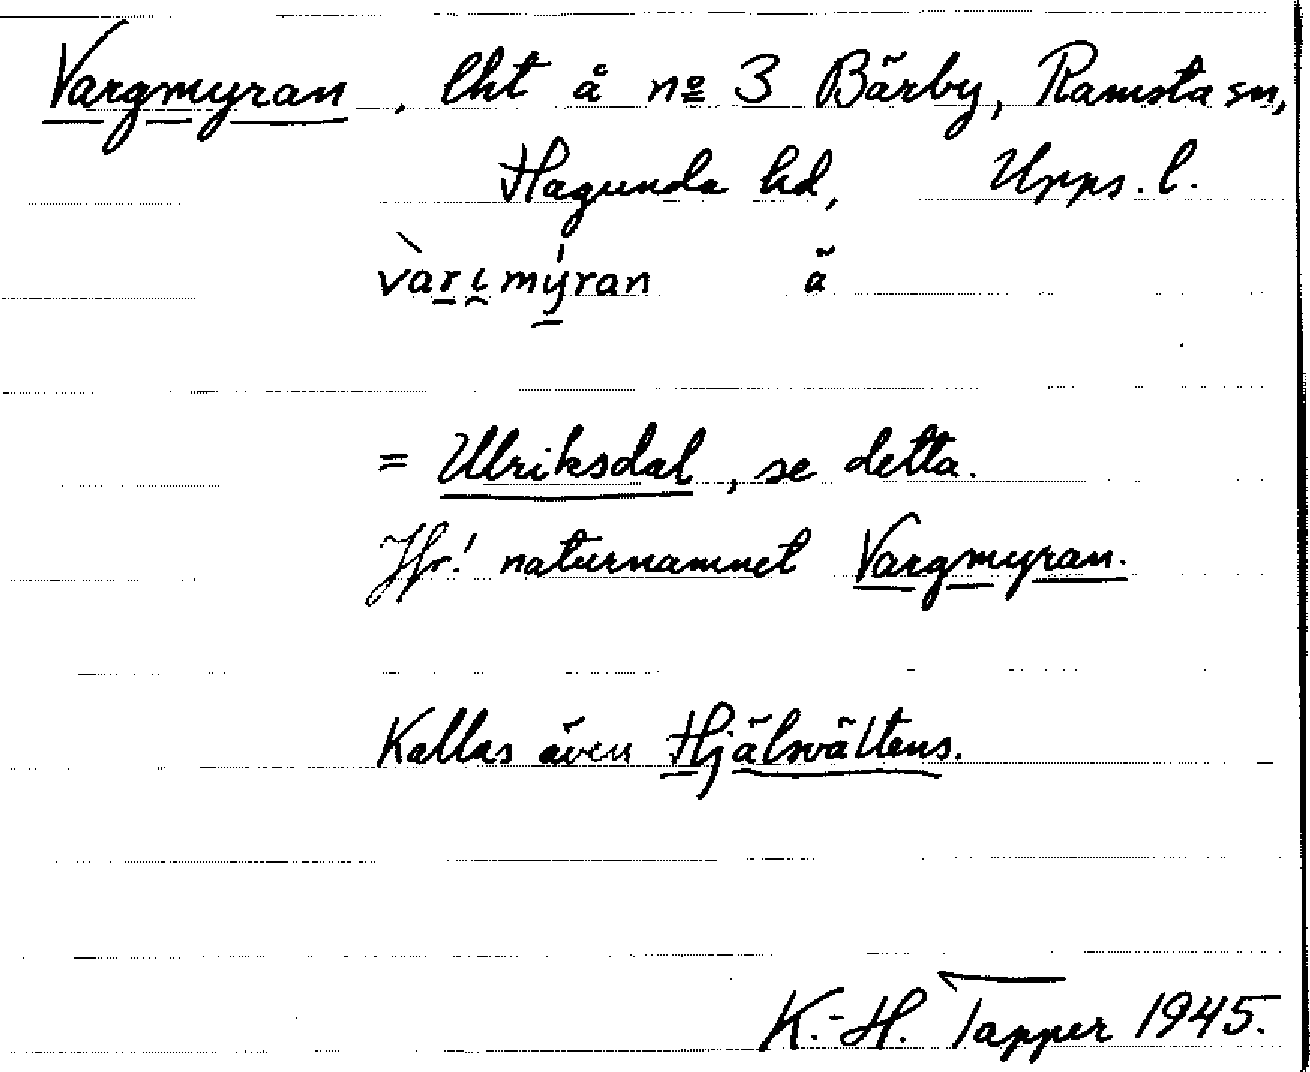 Vargmyran, lht å nº 3 Bärby, Ramsta sn,
Hagunda hd, Upps. l.
varimyran å
= Ulriksdal, se detta.
Jfr! naturnamnet Vargmyran.
Kallas även Hjälsvältens.
K.-H. Tapper 1945.